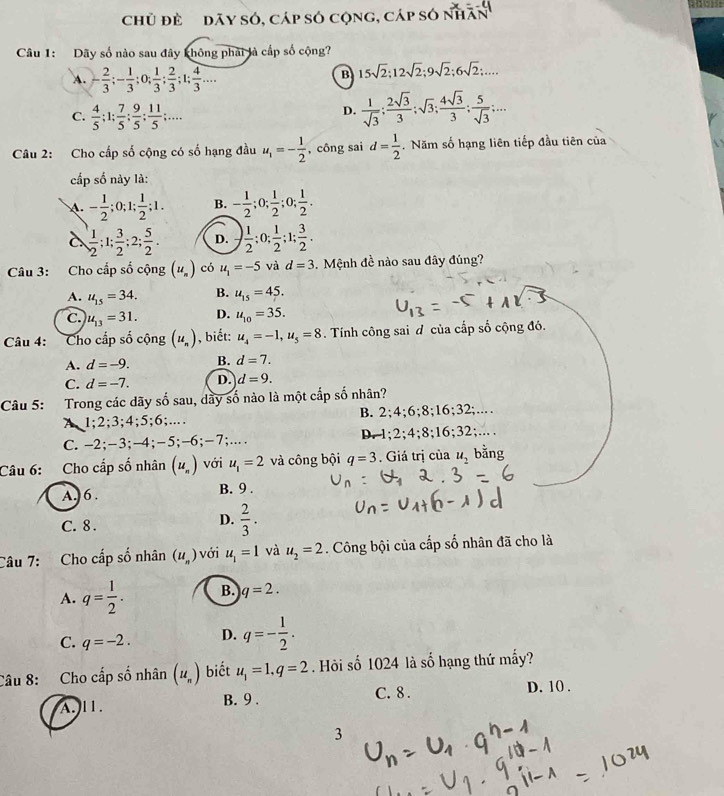 CHỦ ĐỀ DÃY SỐ, CẤP SỐ CỘNG, CẤP SỐ NHÂN
Câu 1: Dãy số nào sau đây không phải là cấp số cộng?
A. -2/3; -1/3; 0; 1/3; 2/3; 1; 4/3....
B. 15√2; 12√2; 9√2; 6√2;....
C. 4/5; 1; 7/5; 9/5; 11/5;....
D. 1/√3; 2√3/3; √3; 4√3/3; 5/√3;...
Câu 2: Cho cấp số cộng có số hạng đầu u₁ = -1/2, công sai d = 1/2. Năm số hạng liên tiếp đầu tiên của
cấp số này là:
A. -1/2; 0; 1; 1/2; 1.
B. -1/2; 0; 1/2; 0; 1/2.
C. 1/2; 1; 3/2; 2; 5/2.
D. -1/2; 0; 1/2; 1; 3/2.
Câu 3: Cho cấp số cộng (uₙ) có u₁ = -5 và d = 3. Mệnh đề nào sau đây đúng?
A. u₁₅ = 34.
B. u₁₅ = 45.
C. u₁₃ = 31.
D. u₁₀ = 35.
U₁₃ = -5 + 12.3
Câu 4: Cho cấp số cộng (uₙ), biết: u₄ = -1, u₅ = 8. Tính công sai d của cấp số cộng đó.
A. d = -9.
B. d = 7.
C. d = -7.
D. d = 9.
Câu 5: Trong các dãy số sau, dãy số nào là một cấp số nhân?
A. 1;2;3;4;5;6;....
B. 2;4;6;8;16;32;....
C. -2;-3;-4;-5;-6;-7;....
D. 1;2;4;8;16;32;....
Câu 6: Cho cấp số nhân (uₙ) với u₁ = 2 và công bội q = 3. Giá trị của u₂ bằng
A. 6.
B. 9.
2.3 = 6
C. 8.
D. 2/3.
Uₙ = U₁+(n-1)d
Câu 7: Cho cấp số nhân (uₙ) với u₁ = 1 và u₂ = 2. Công bội của cấp số nhân đã cho là
A. q = 1/2.
B. q = 2.
C. q = -2.
D. q = -1/2.
Câu 8: Cho cấp số nhân (uₙ) biết u₁ = 1, q = 2. Hỏi số 1024 là số hạng thứ mấy?
A. 11.
B. 9.
C. 8.
D. 10.
3
Uₙ = U₁ . qⁿ⁻¹
= 1024